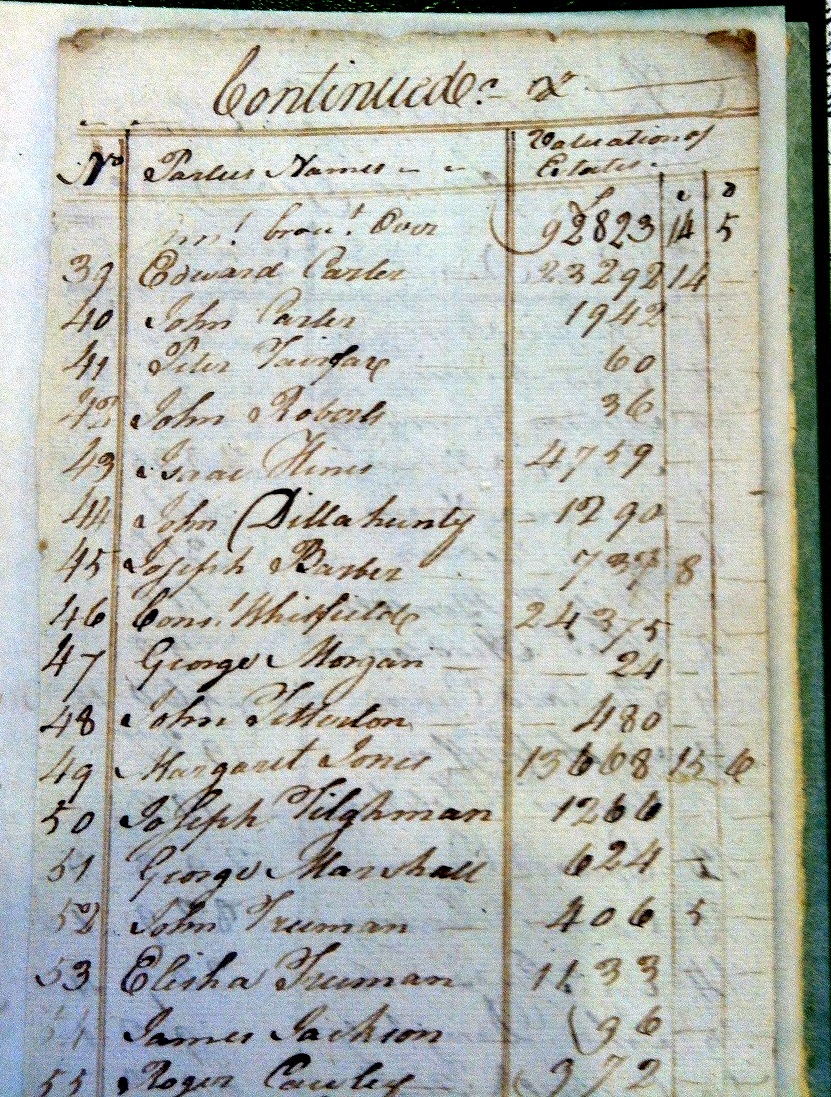 Continued
No Parties Names Valuation of Estates
£ s D
amt brout Over 92823 14 5
39 Edward Carter 23292 14
40 John Carter 1942
41 Peter Fairfax 60
42 John Roberts 36
43 Isaac Hines 4759
44 John Dillahunty 1290
45 Joseph Barber 737 8
46 Cons Whitfield 24375
47 George Morgan 24
48 John Titterton 480
49 Margaret Jones 13668 15 6
50 Joseph Tilghman 1266
51 George Marshall 624
52 John Truman 406 5
53 Elisha Truman 1133
54 James Jackson 96
55 Roger Cauley 372